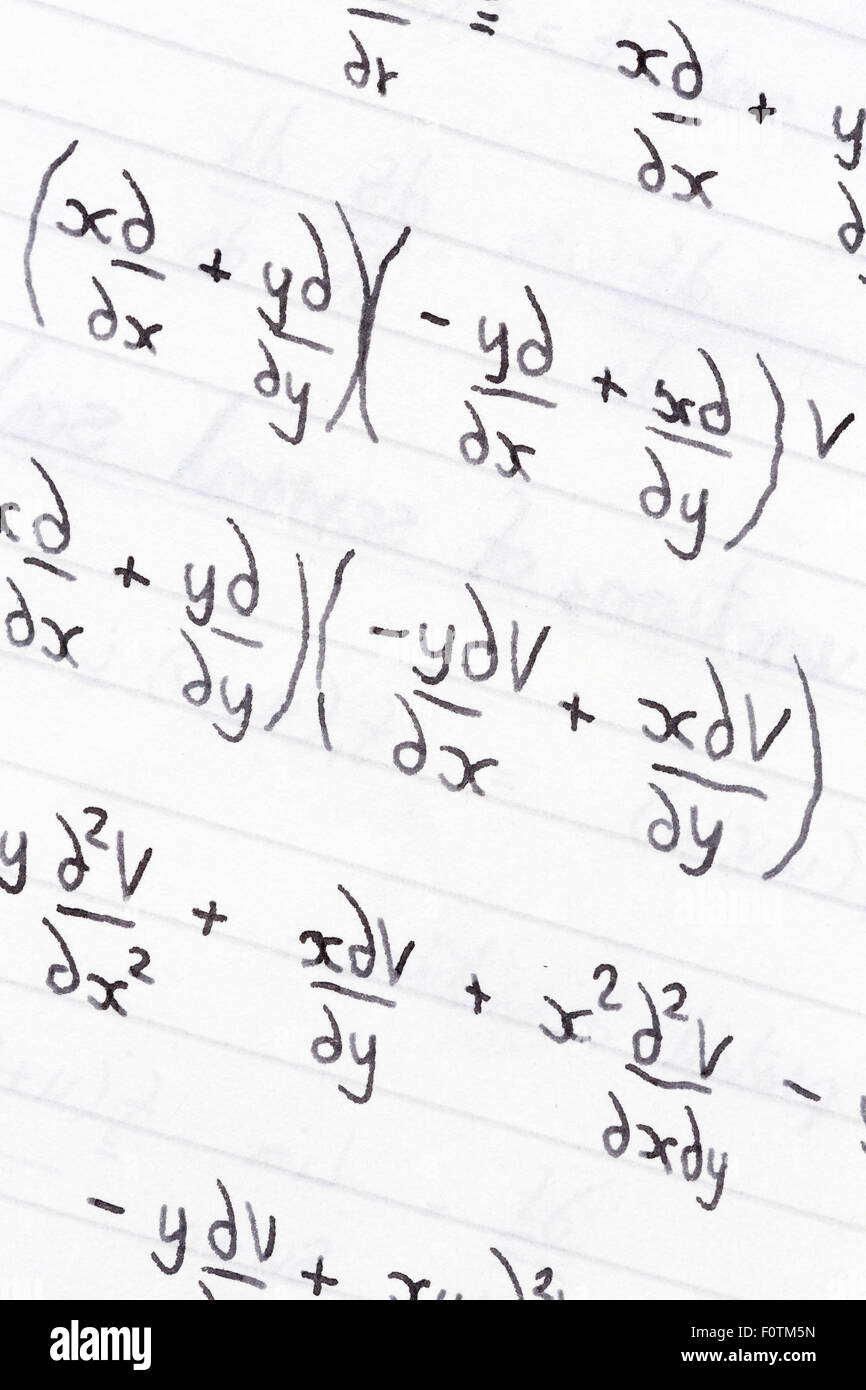 ∂/∂r = x∂/∂x + y
(x∂/∂x + y∂/∂y)(-y∂/∂x + x∂/∂y) V
x∂/∂x + y∂/∂y)(-y∂V/∂x + x∂V/∂y)
y ∂²V/∂x² + x∂V/∂y + x² ∂²V/∂x∂y -
- y∂V + xy ∂²
alamy
Image ID: F0TM5N
www.alamy.com